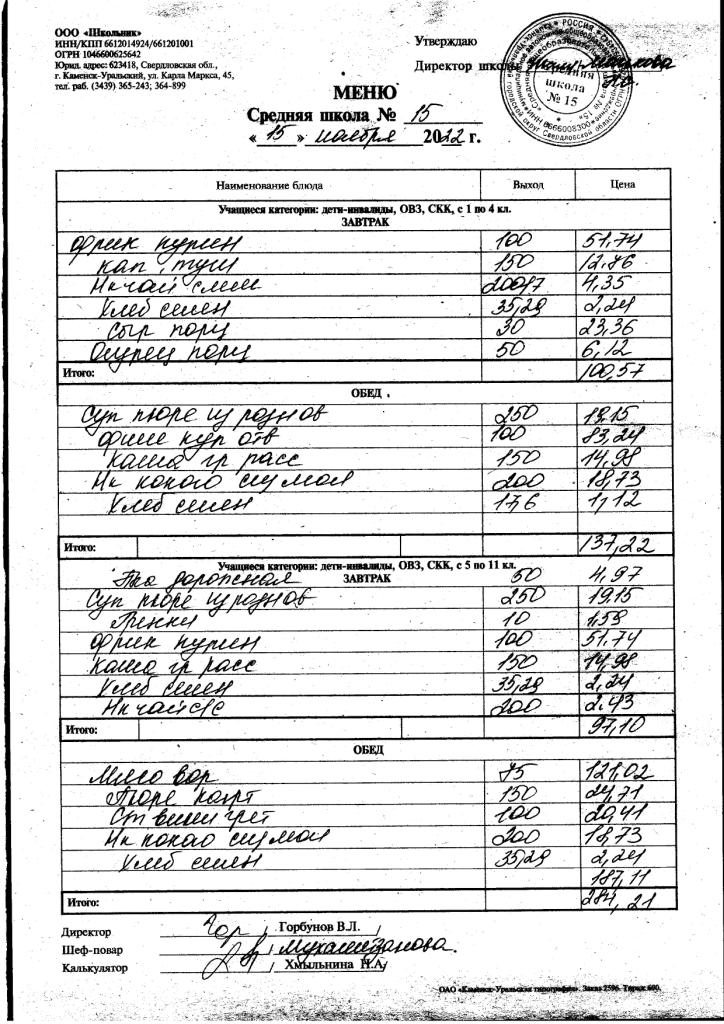 ООО «Школьник»
ИНН/КПП 6612014924/661201001
ОГРН 1046600625642
Юрид. адрес: 623418, Свердловская обл.,
г. Каменск-Уральский, ул. Карла Маркса, 45,
тел. раб. (3439) 365-243; 364-899
Утверждаю
Директор школы
РОССИЯ
школа
№ 15
МЕНЮ
Средняя школа № 15
« 15 » ноября 2022 г.
Наименование блюда Выход Цена
Учащиеся категории: дети-инвалиды, ОВЗ, СКК, с 1 по 4 кл.
ЗАВТРАК
Фрик курин 100 51,74
Кап. туш 150 12,76
Нк чай слим 200/17 4,35
Хлеб семен 35,29 2,24
Сыр порц 30 23,36
Огурец порц 50 6,12
Итого: 100,57
ОБЕД
Суп пюре из разнов 250 19,15
Филе кур отв 100 83,24
Каша гр расс 150 14,98
Нк какао сгу мол 200 18,73
Хлеб семен 17,6 1,12
Итого: 137,22
Учащиеся категории: дети-инвалиды, ОВЗ, СКК, с 5 по 11 кл.
ЗАВТРАК
50 4,97
Суп пюре из разнов 250 19,15
Гренки 10 1,59
Фрик курин 100 51,74
Каша гр расс 150 14,98
Хлеб семен 35,29 2,24
Нк чай с/с 200 2,43
Итого: 97,10
ОБЕД
Мясо вар 75 121,02
Пюре карт 150 24,71
Ст винегрет 100 20,41
Нк какао сгу мол 200 18,73
Хлеб семен 35,29 2,24
187,11
Итого: 284,21
Директор Гор / Горбунов В.Л. /
Шеф-повар
Калькулятор / Хмыльнина Н.А/
ОАО «Каменск-Уральская типография». Заказ 2596. Тираж 600.